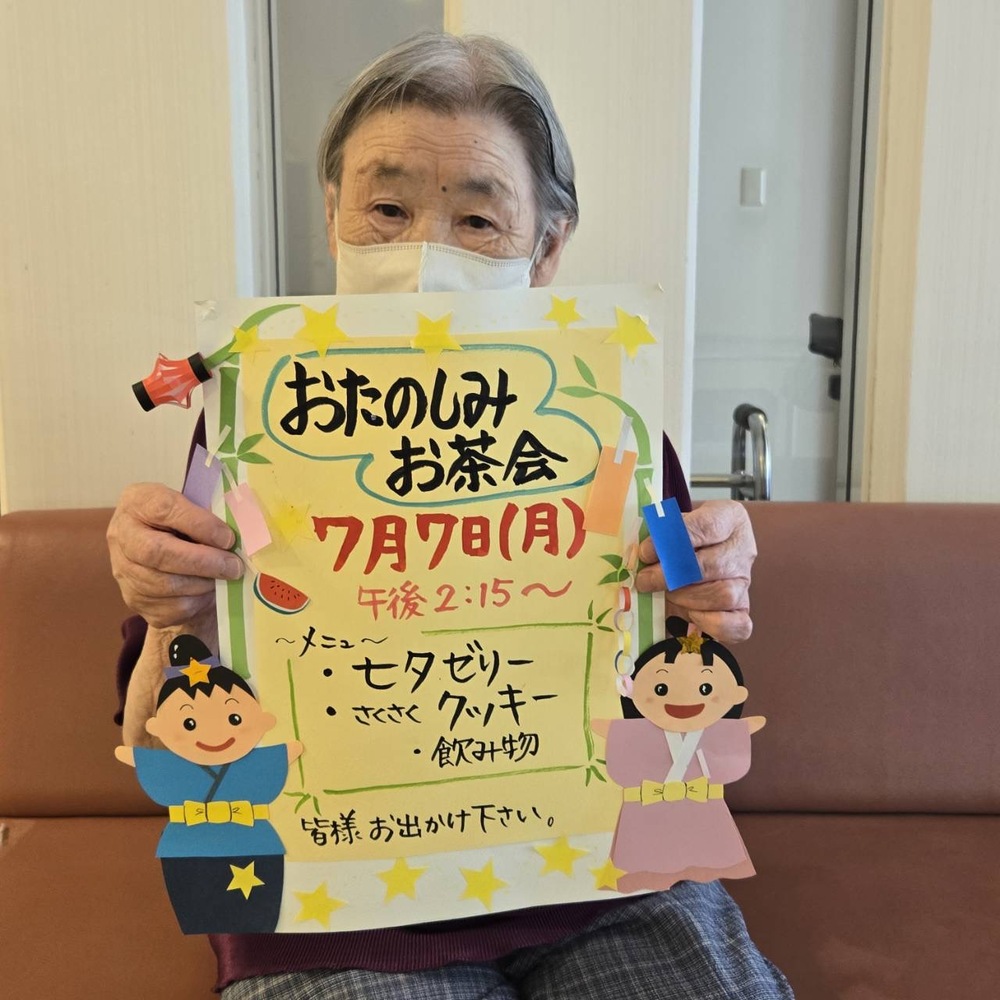 おたのしみ
お茶会
7月7日(月)
午後2:15〜
〜メニュー〜
・七夕ゼリー
・さくさくクッキー
・飲み物
皆様お出かけ下さい。